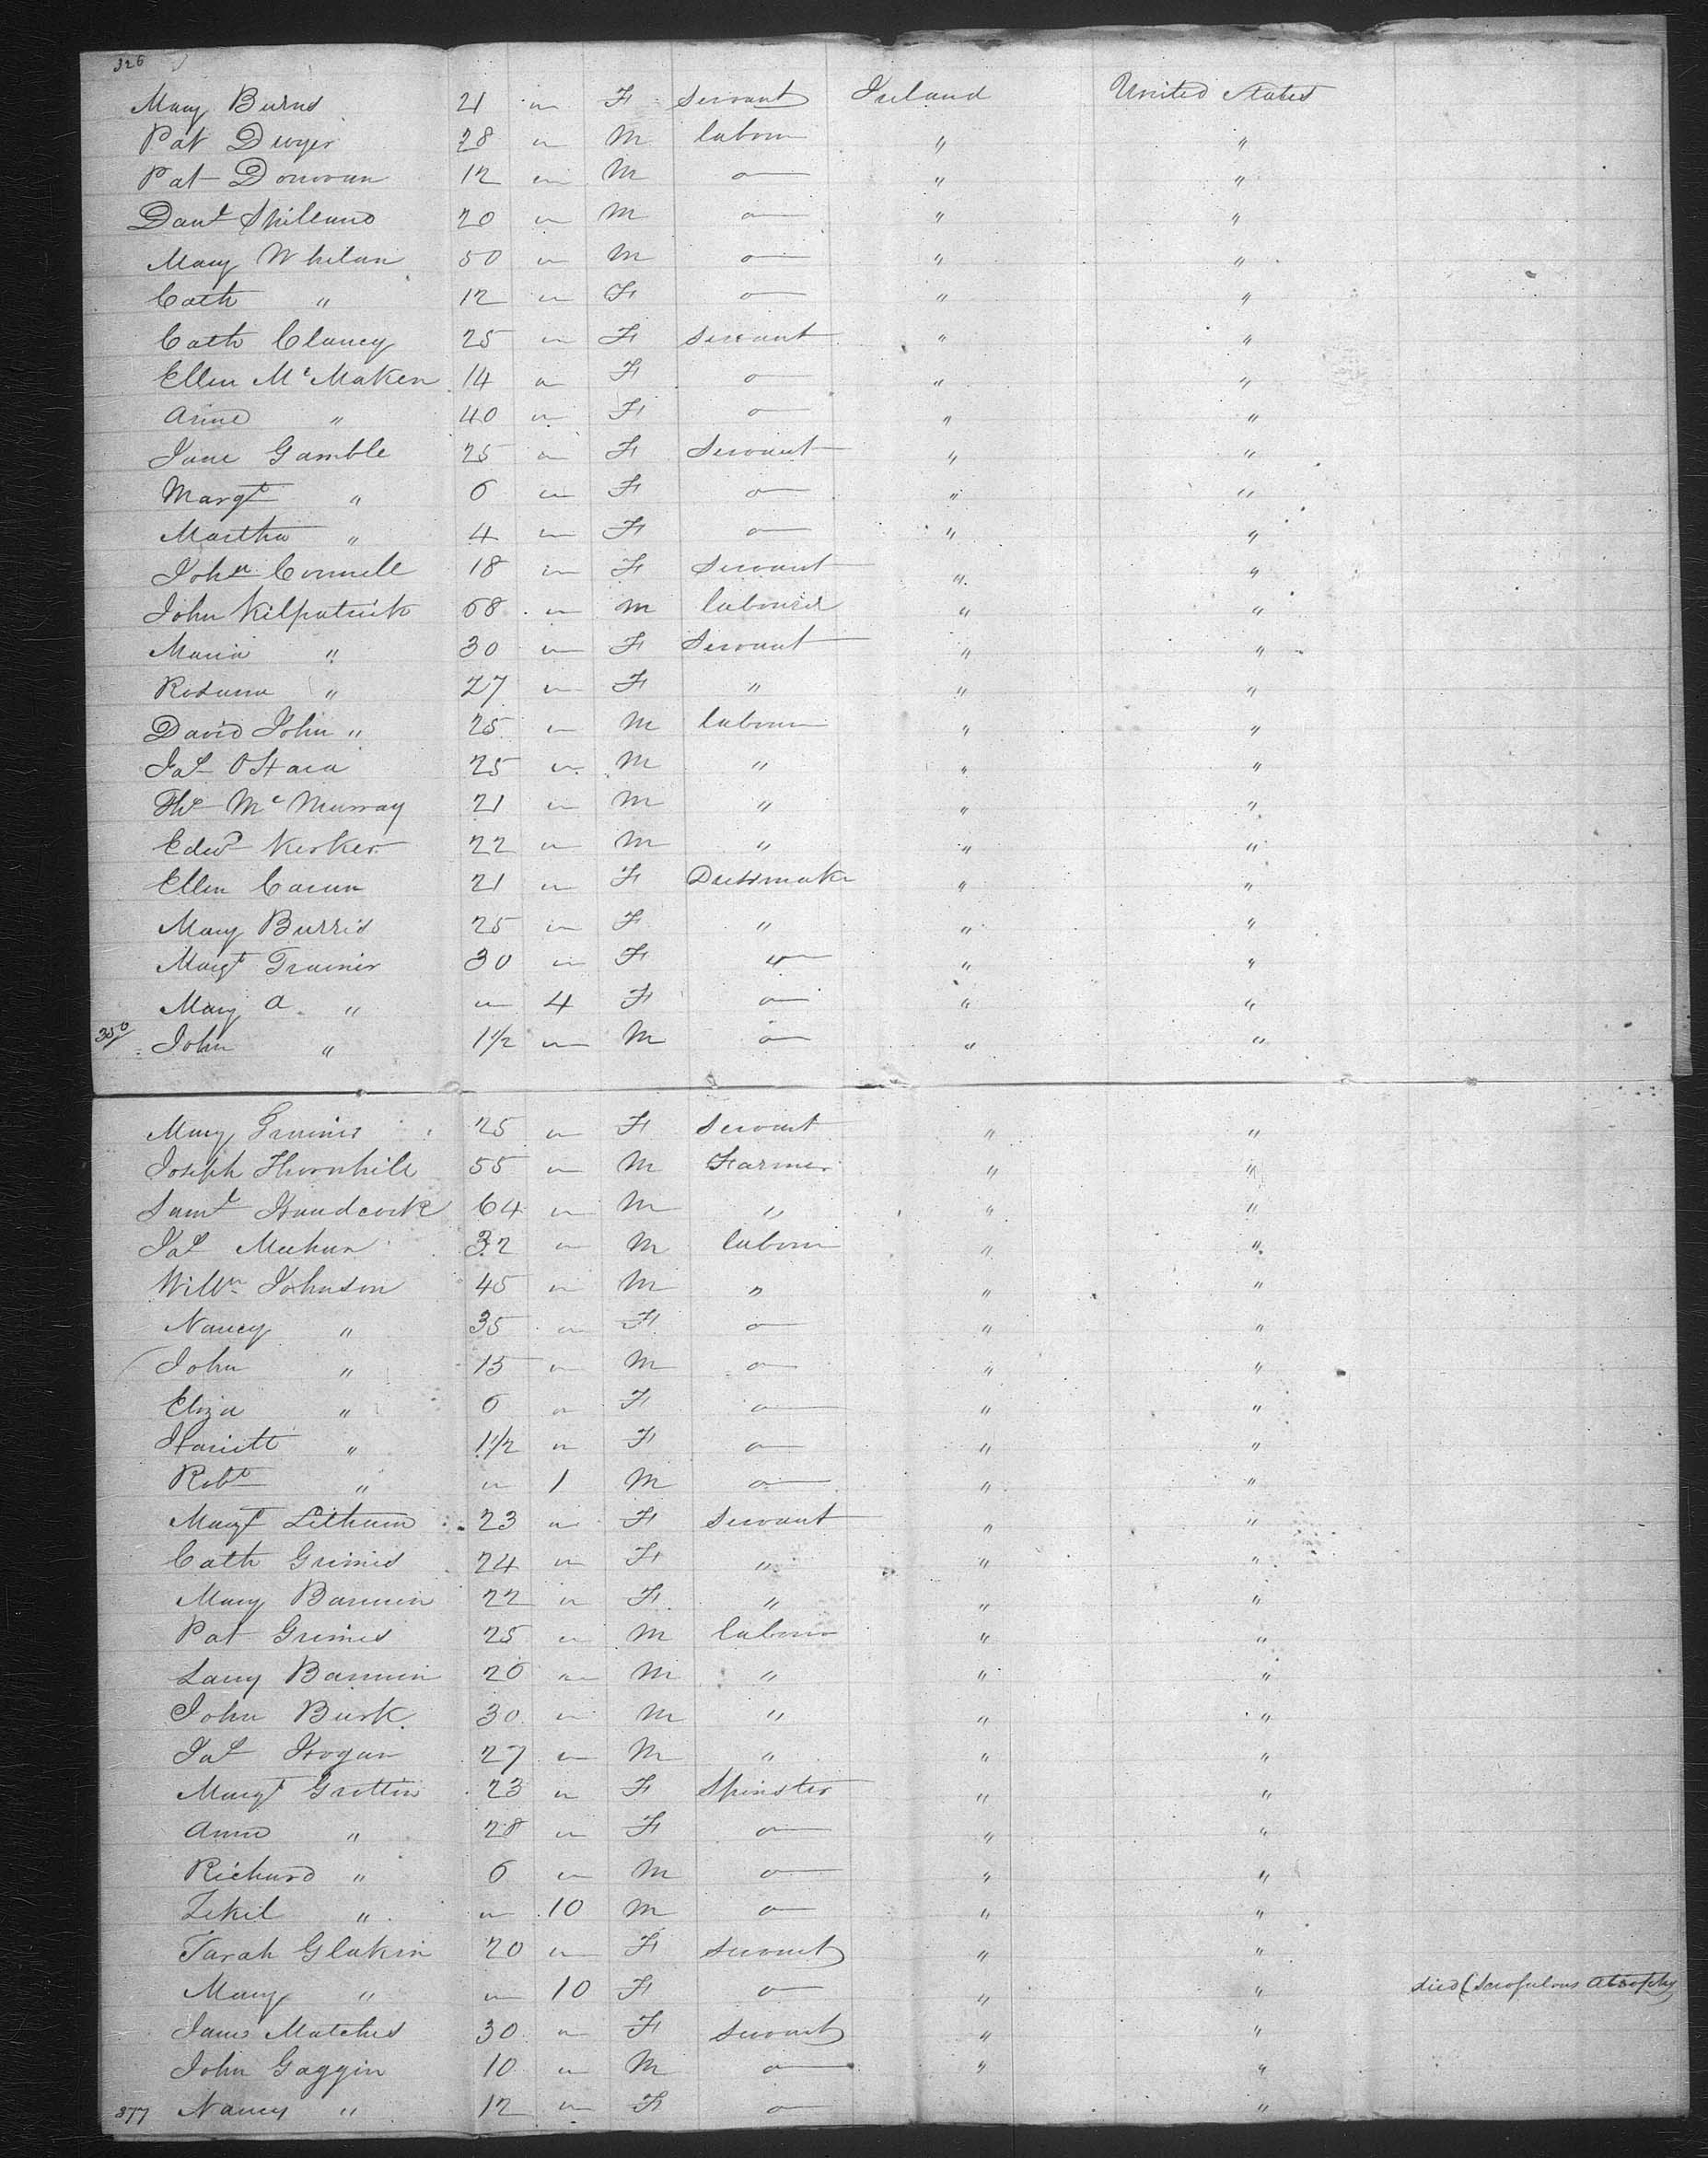 326
Mary Burns 21 " F Servant Ireland United States
Pat Dwyer 28 " M labour " "
Pat Donovan 12 " M " "
Danl Shillano 20 " M " "
Mary Whelan 50 " M " "
Cath " 12 " F " "
Cath Clancy 25 " F servant " "
Ellen Mc Maken 14 " F " "
Anne " 40 " F " "
Jane Gamble 25 " F Servant " "
Margt " 6 " F " "
Martha " 4 " F " "
John Connell 18 " F Servant " "
John Kilpatrick 68 " M labourer " "
Maria " 30 " F Servant " "
Rosanna " 27 " F " " "
David John " 25 " M labour " "
Jas O Hara 25 " M " " "
Ths Mc Murray 21 " M " " "
Edwd Kerker 22 " M " " "
Ellen 21 " F Dressmaker " "
Mary Burris 25 " F " " "
Margt Trainer 30 " F " "
Mary A. " " 4 F " "
350 John " 1½ " M " "
Mary 25 " F Servant " "
Joseph Thornhill 55 " M Farmer " "
Saml Handcock 64 " M " " "
Jas Meehan 32 " M labour " "
Willm Johnson 45 " M " " "
Nancy " 35 " F " "
John " 15 " M " "
Eliza " 6 " F " "
Hariett " 1½ " F " "
Robt " " 1 M " "
Margt 23 " F Servant " "
Cath Grimes 24 " F " " "
Mary Bannin 22 " F " " "
Pat Grimes 25 " M labour " "
Larry Bannin 26 " M " " "
John Burk 30 " M " " "
Jas Hogan 27 " M " " "
Margt Grottin 23 " F Spinster " "
Anne " 28 " F " "
Richard " 6 " M " "
Zekil " " 10 M " "
Sarah Glakin 20 " F servant " "
Mary " " 10 F " " died (Scrofulous Atrophy)
Jane Matches 30 " F servant " "
John Gaggin 10 " M " "
377 Nancy " 12 " F "